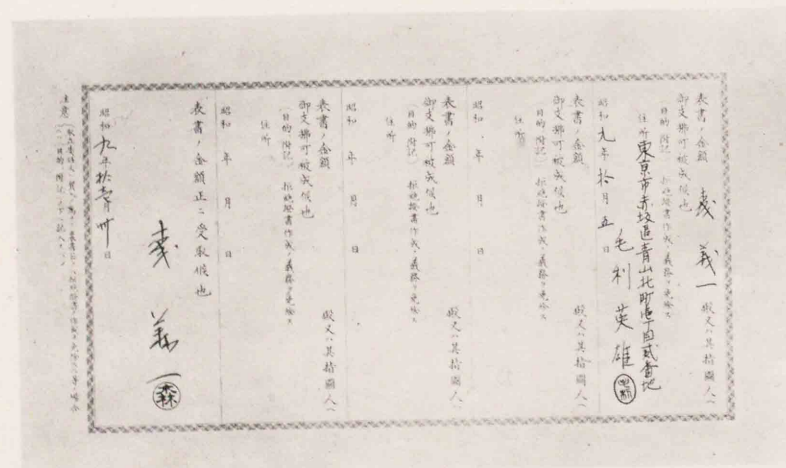 表書ノ金額
義一
殿又ハ其指圖人ヘ
御支拂可被成候也
(目的 附記) 拒絶證書作成ノ義務ヲ免除ス
昭和九年拾月五日
住所 東京市赤坂區青山北町
毛利英雄
表書ノ金額
殿又ハ其指圖人ヘ
御支拂可被成候也
(目的 附記) 拒絶證書作成ノ義務ヲ免除ス
昭和 年 月 日
住所
表書ノ金額
殿又ハ其指圖人ヘ
御支拂可被成候也
(目的 附記) 拒絶證書作成ノ義務ヲ免除ス
昭和 年 月 日
住所
表書ノ金額
殿又ハ其指圖人ヘ
御支拂可被成候也
(目的 附記) 拒絶證書作成ノ義務ヲ免除ス
昭和 年 月 日
住所
表書ノ金額正ニ受取候也
昭和九年
日
義一 森
注意